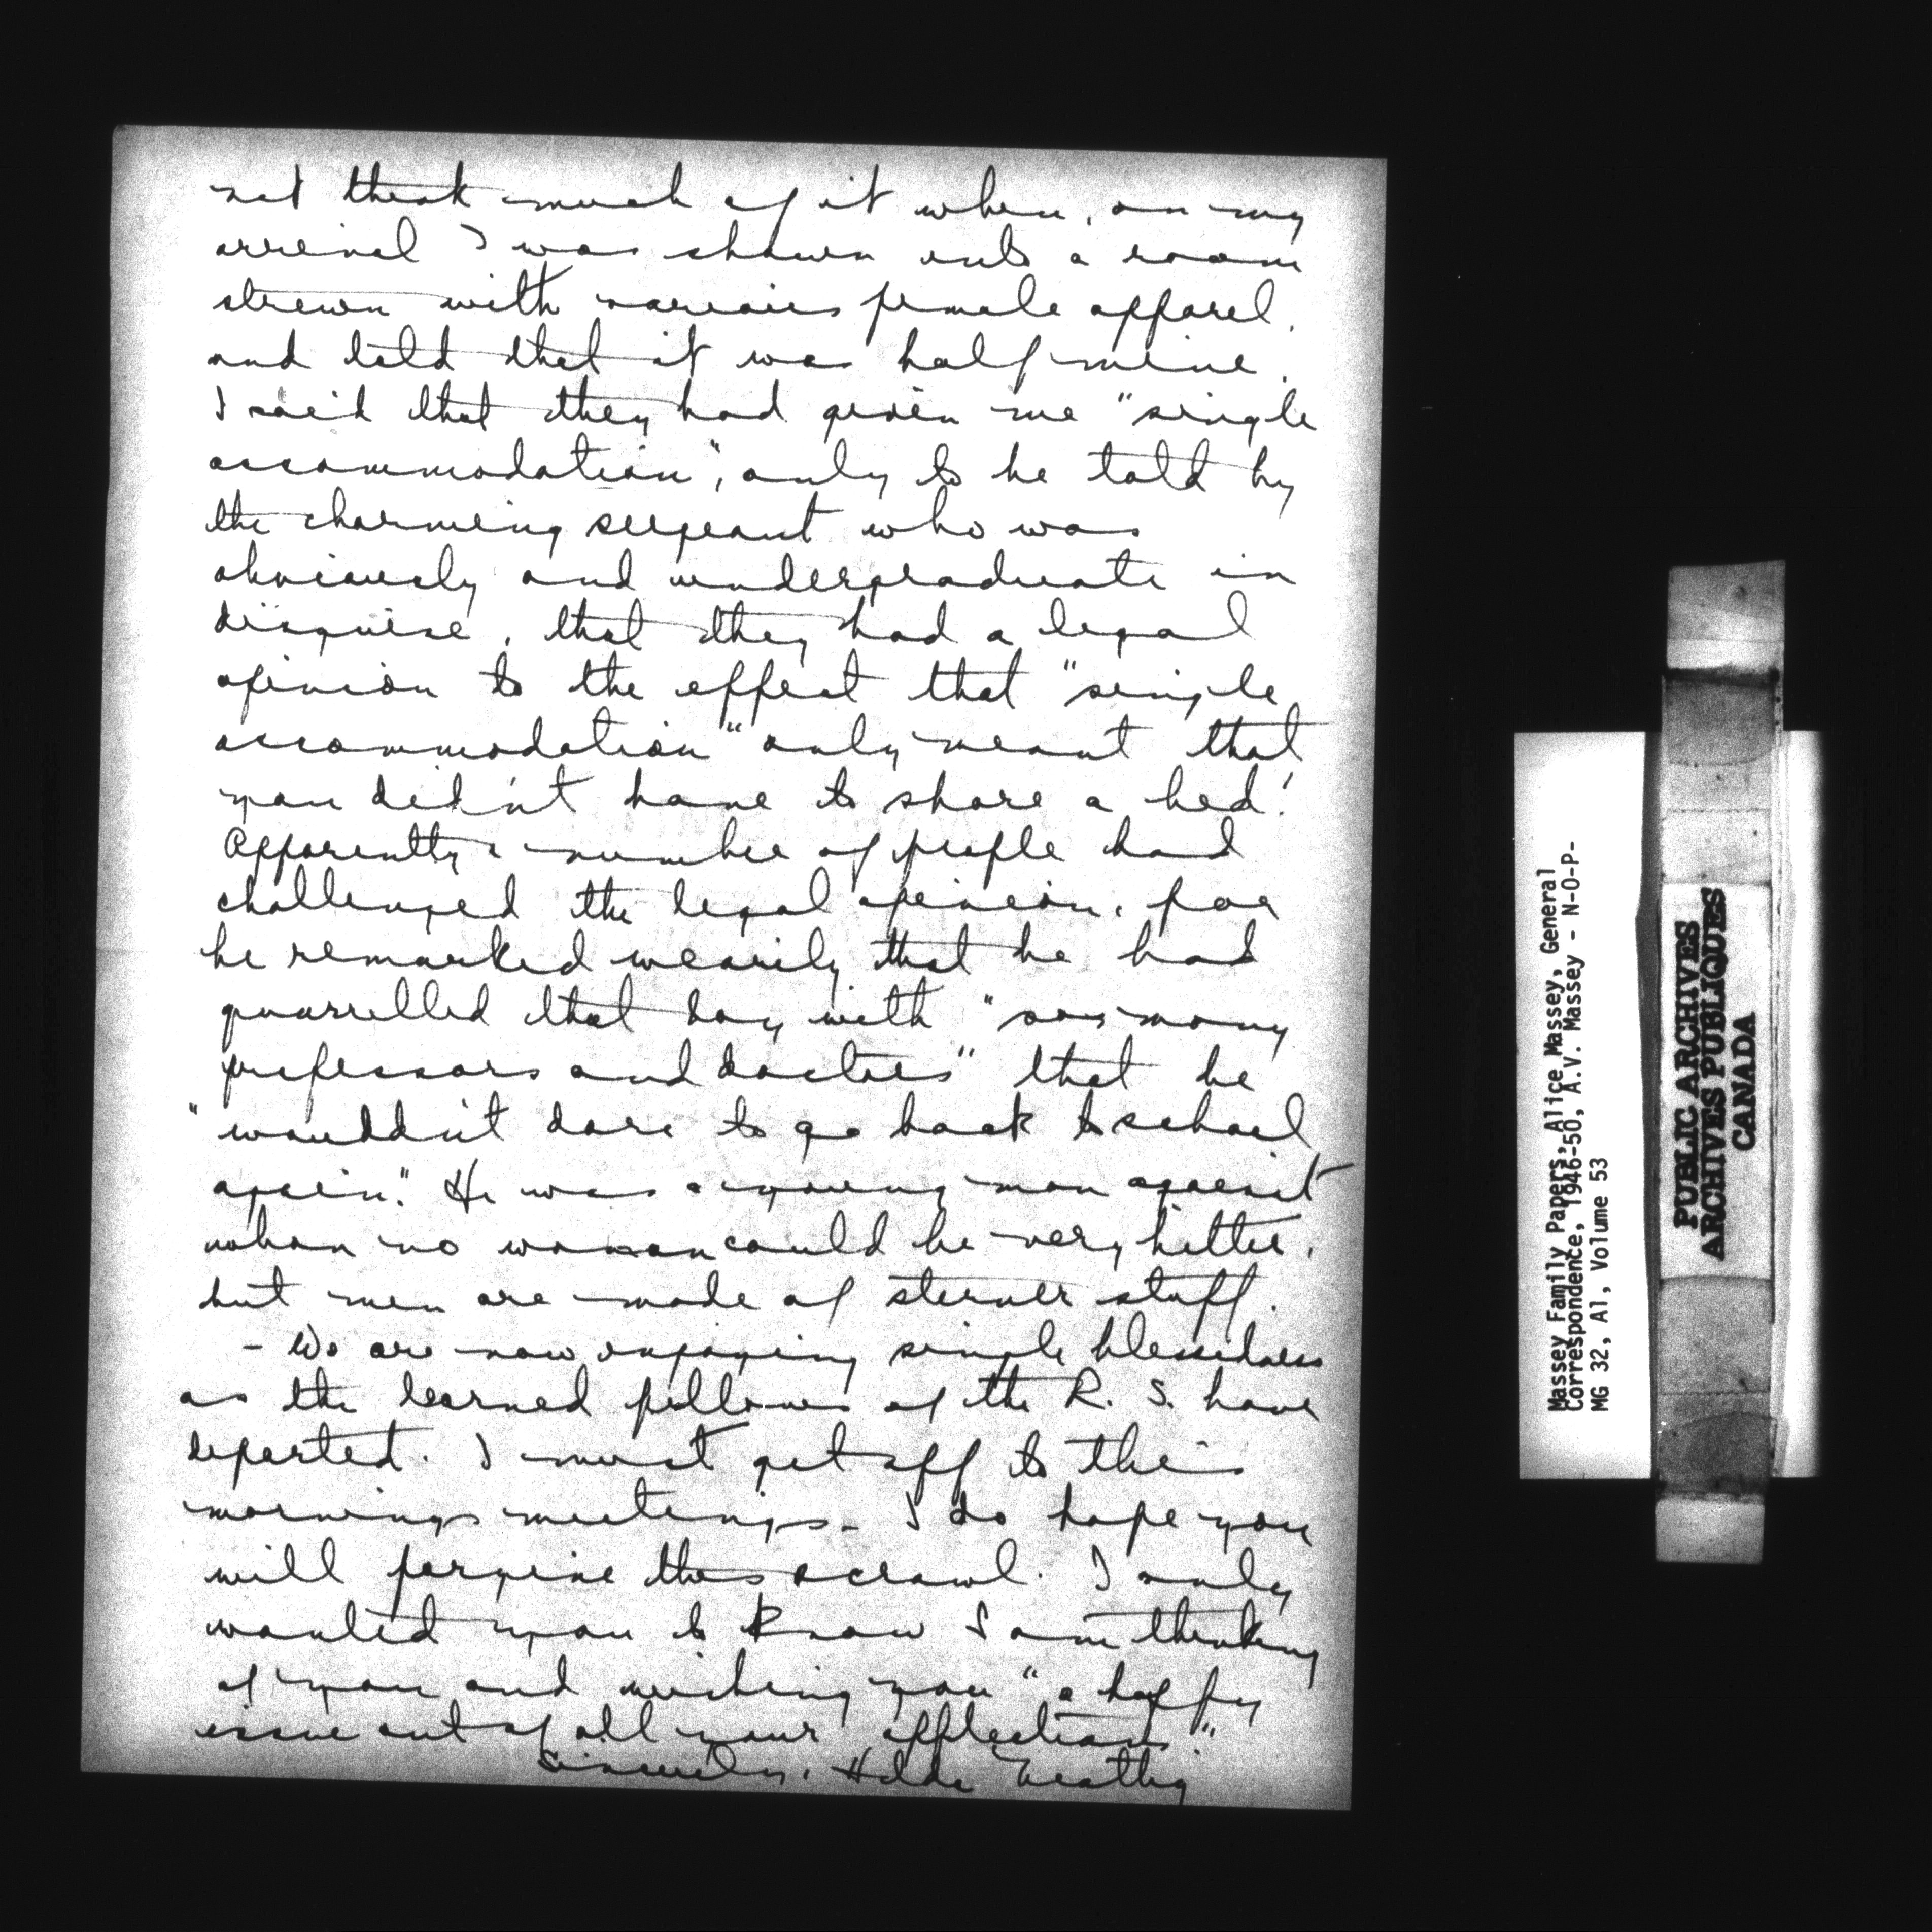 not think much of it when, on my
arrival I was shown into a room
strewn with various female apparel,
and told that it was half mine.
I said that they had given me "single
accommodation", only to be told by
the charming sergeant who was
obviously and undergraduate in
disguise, that they had a legal
opinion to the effect that "single
accommodation" only meant that
you didn't have to share a bed!
Apparently a number of people had
challenged the legal opinion, for
he remarked wearily that he had
quarrelled that day with "so many
professors and doctors" that he
"wouldn't dare to go back to school
again." He was a young man against
whom no woman could be very bitter,
but men are made of sterner stuff.
- We are now enjoying single blessedness
as the learned fellows of the R. S. have
departed. I must get off to this
mornings meetings - I do hope you
will forgive this scrawl. I only
wanted you to know I am thinking
of you and wishing you "a happy
issue out of all your afflictions"
Sincerely, Hilda Neatby
Massey Family Papers, Alice Massey, General
Correspondence, 1946-50, A.V. Massey - N-O-P-
MG 32, A1, Volume 53
PUBLIC ARCHIVES
ARCHIVES PUBLIQUES
CANADA